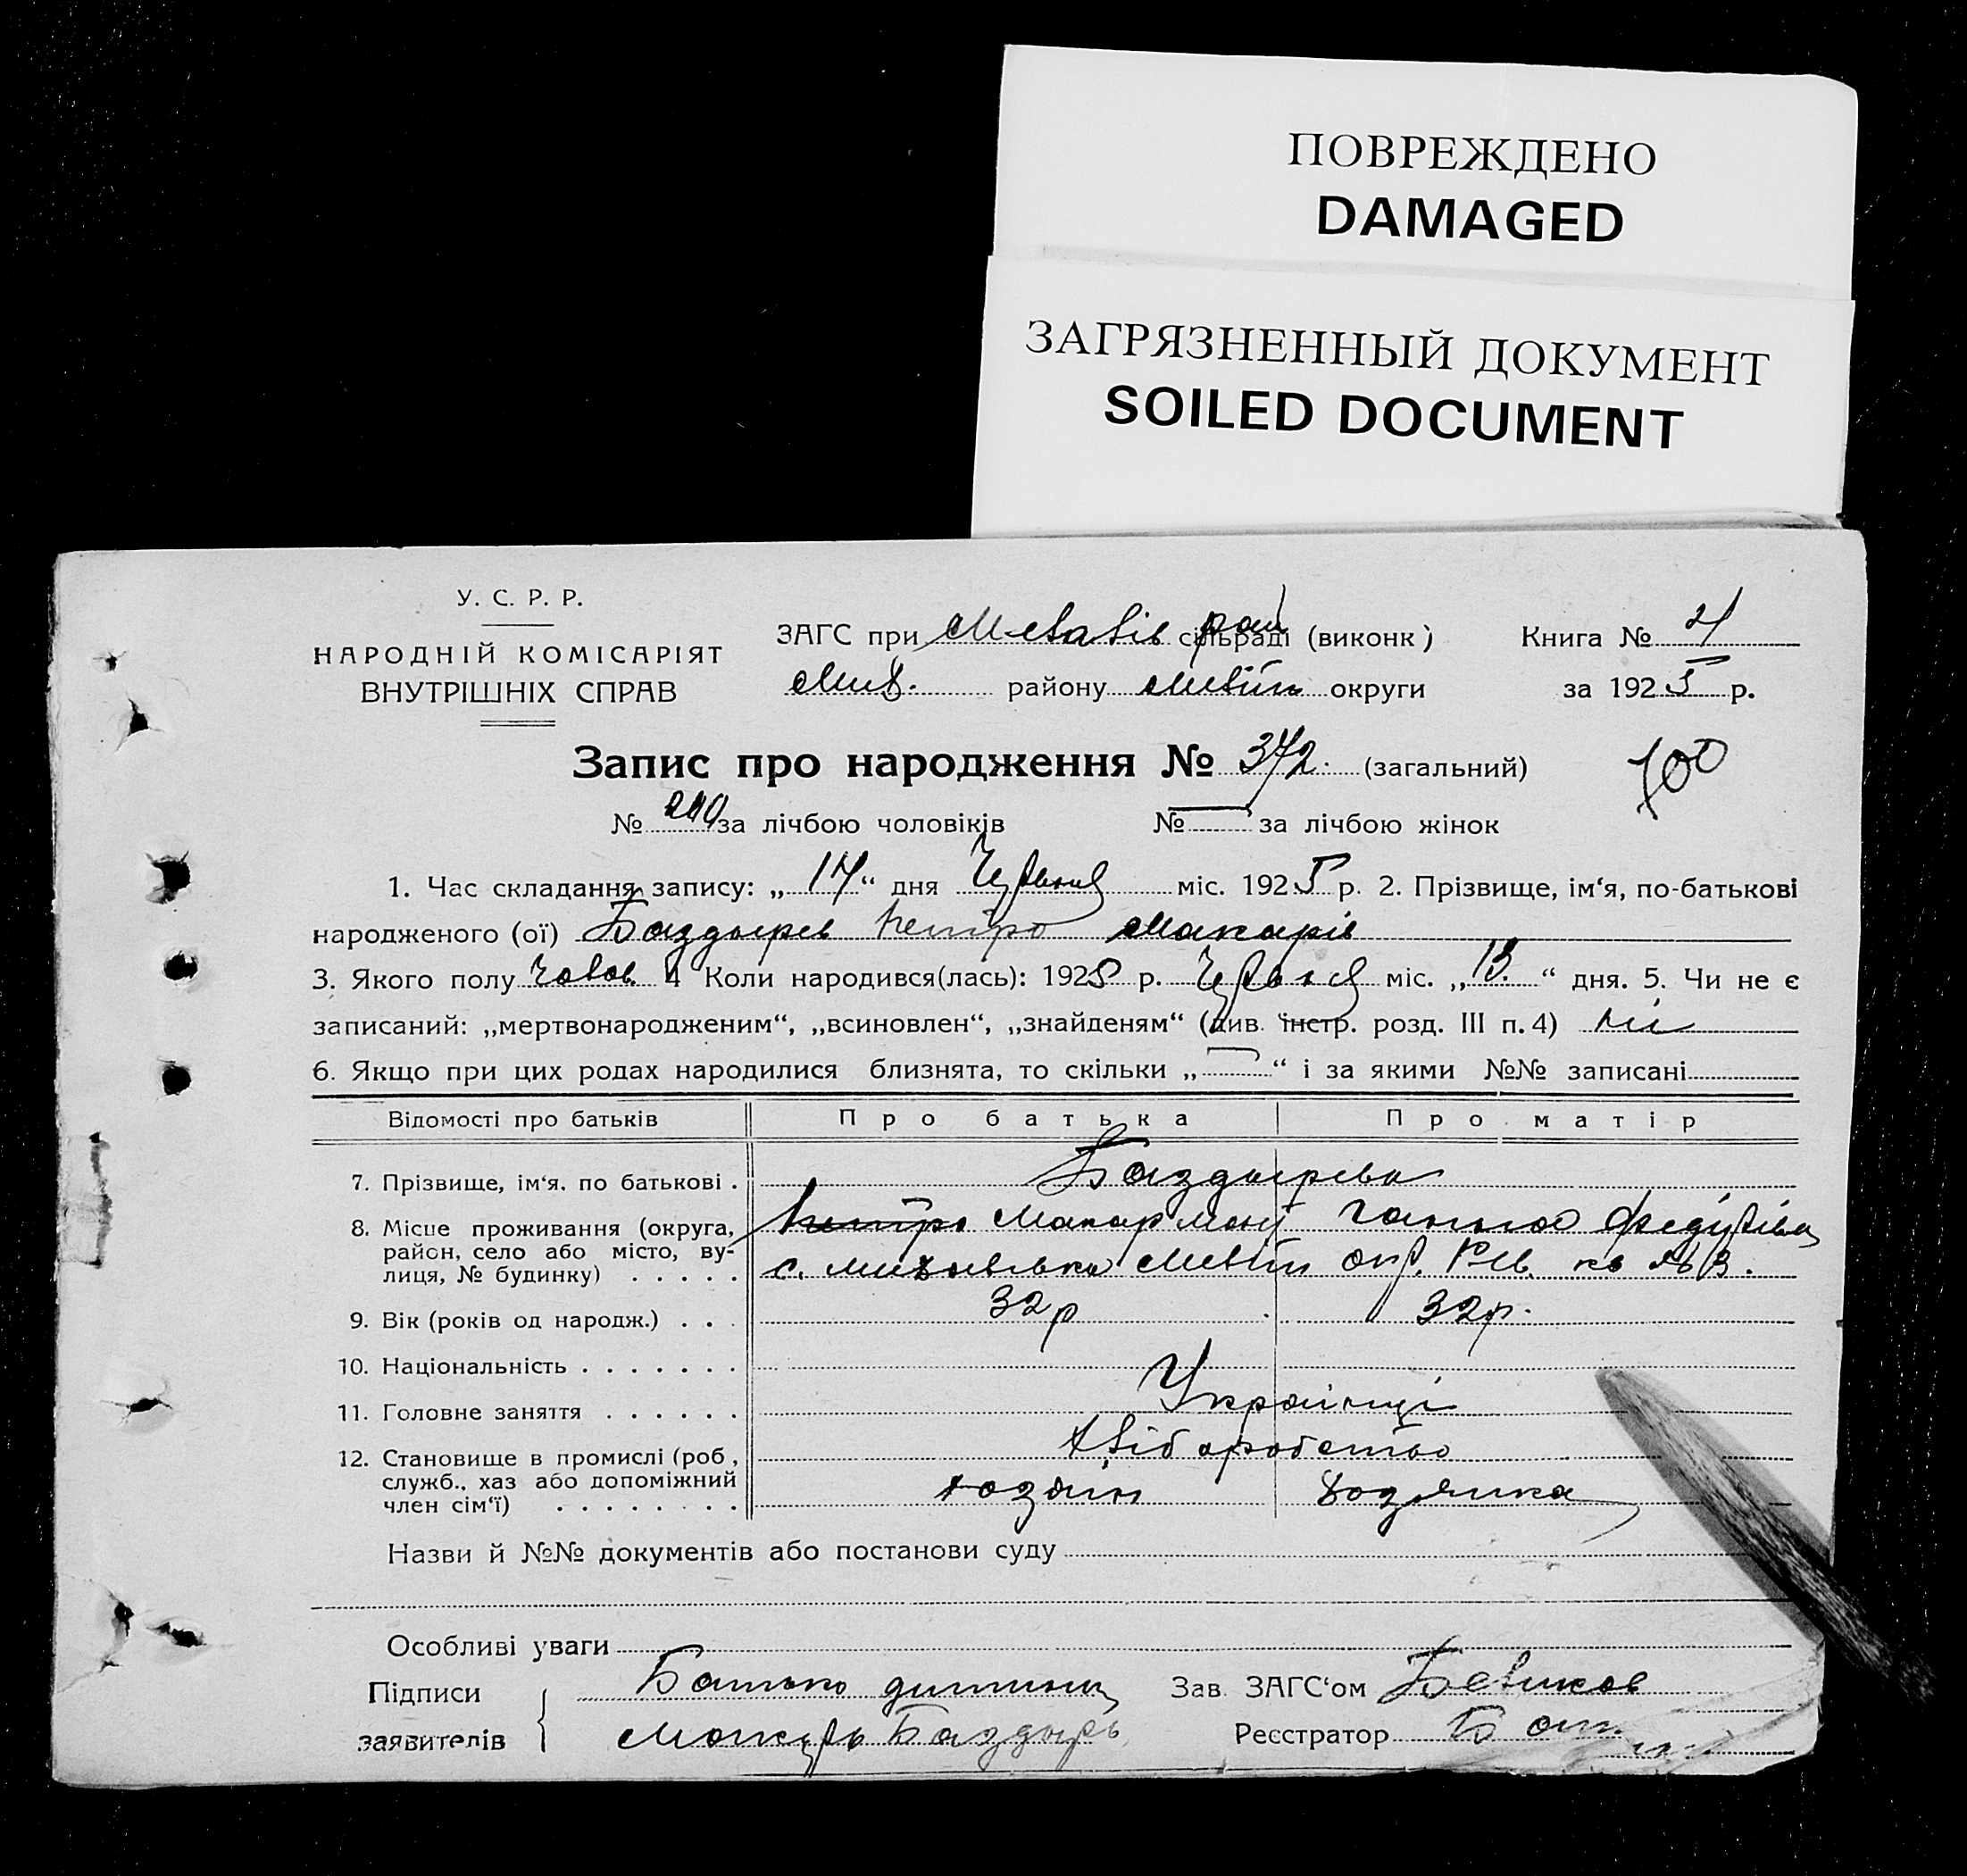 ПОВРЕЖДЕНО
DAMAGED
ЗАГРЯЗНЕННЫЙ ДОКУМЕНТ
SOILED DOCUMENT
У. С. Р. Р.
НАРОДНІЙ КОМІСАРІЯТ
ВНУТРІШНІХ СПРАВ
ЗАГС при сільраді (виконк)
району округи
Книга № 4
за 1925 р.
Запис про народження № 372. (загальний)
100
№ 210 за лічбою чоловіків № — за лічбою жінок
1. Час складання запису: „17“ дня Червня міс. 1925 р. 2. Прізвище, ім‘я, по-батькові
народженого (ої) Баздырев Петро Макарів
3. Якого полу чолов. 4 Коли народився(лась): 1925 р. Червня міс. „13.“ дня. 5. Чи не є
записаний: „мертвонародженим“, „всиновлен“, „знайденям“ (див. інстр. розд. III п. 4) ні
6. Якщо при цих родах народилися близнята, то скільки „—“ і за якими №№ записані
Відомості про батьків Про батька Про матір
7. Прізвище, ім‘я. по батькові . Баздырева
8. Місце проживання (округа, район, село або місто, вулиця, № будинку) . . . . .
Петро Макар Ганна
с. Михайлівка окр.
9. Вік (років од народж.) . . . 32 р 32 р.
10. Національність . . . . . . .
11. Головне заняття . . . . . . Українці
12. Становище в промислі (роб, служб., хаз або допоміжний член сім‘ї) . . . . . . . .
хліборобство
хозяїн хозяйка
Назви й №№ документів або постанови суду
Особливі уваги
Підписи заявителів { Батько дитини
Макарь Баздырь
Зав. ЗАГС‘ом
Реєстратор